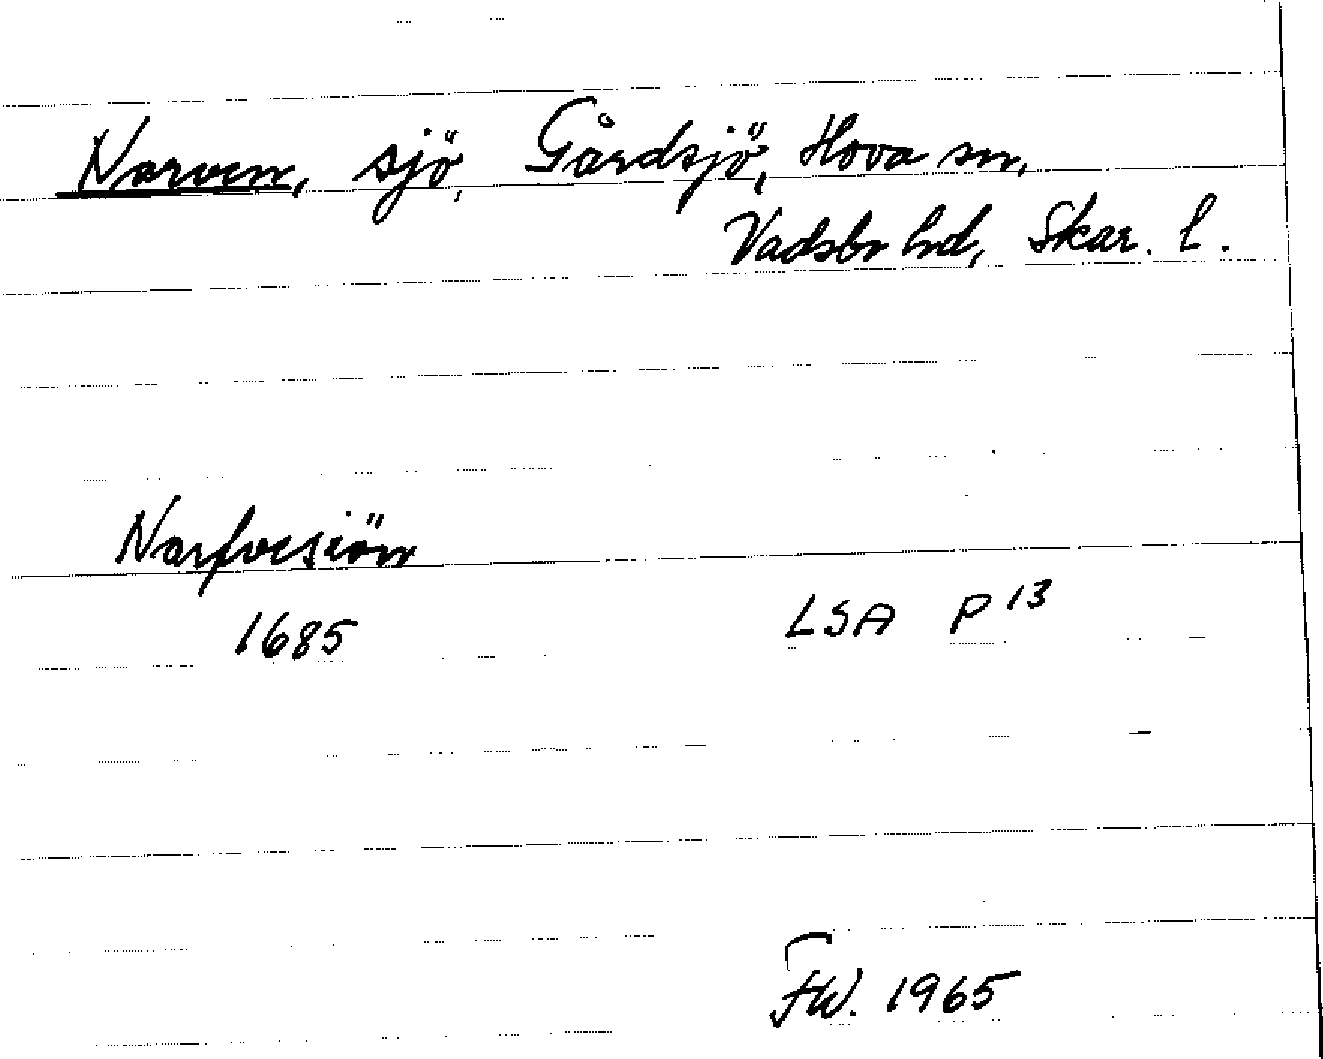 Narven, sjö, Gårdsjö, Hova sn,
Vadsbr hd, Skar. l.
Narfvesiön
1685 LSA P 13
FW. 1965